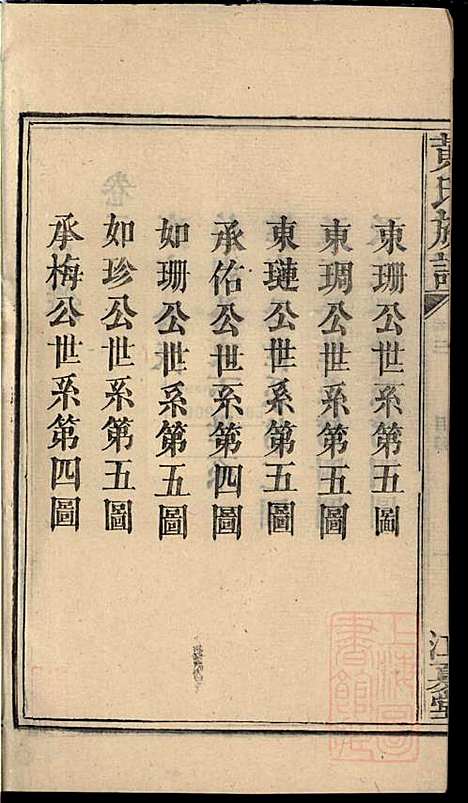 黄氏族譜
江夏堂
東珊公世系第五圖
東琱公世系第五圖
東璉公世系第五圖
承佑公世系第四圖
如珊公世系第五圖
如珍公世系第五圖
承梅公世系第四圖